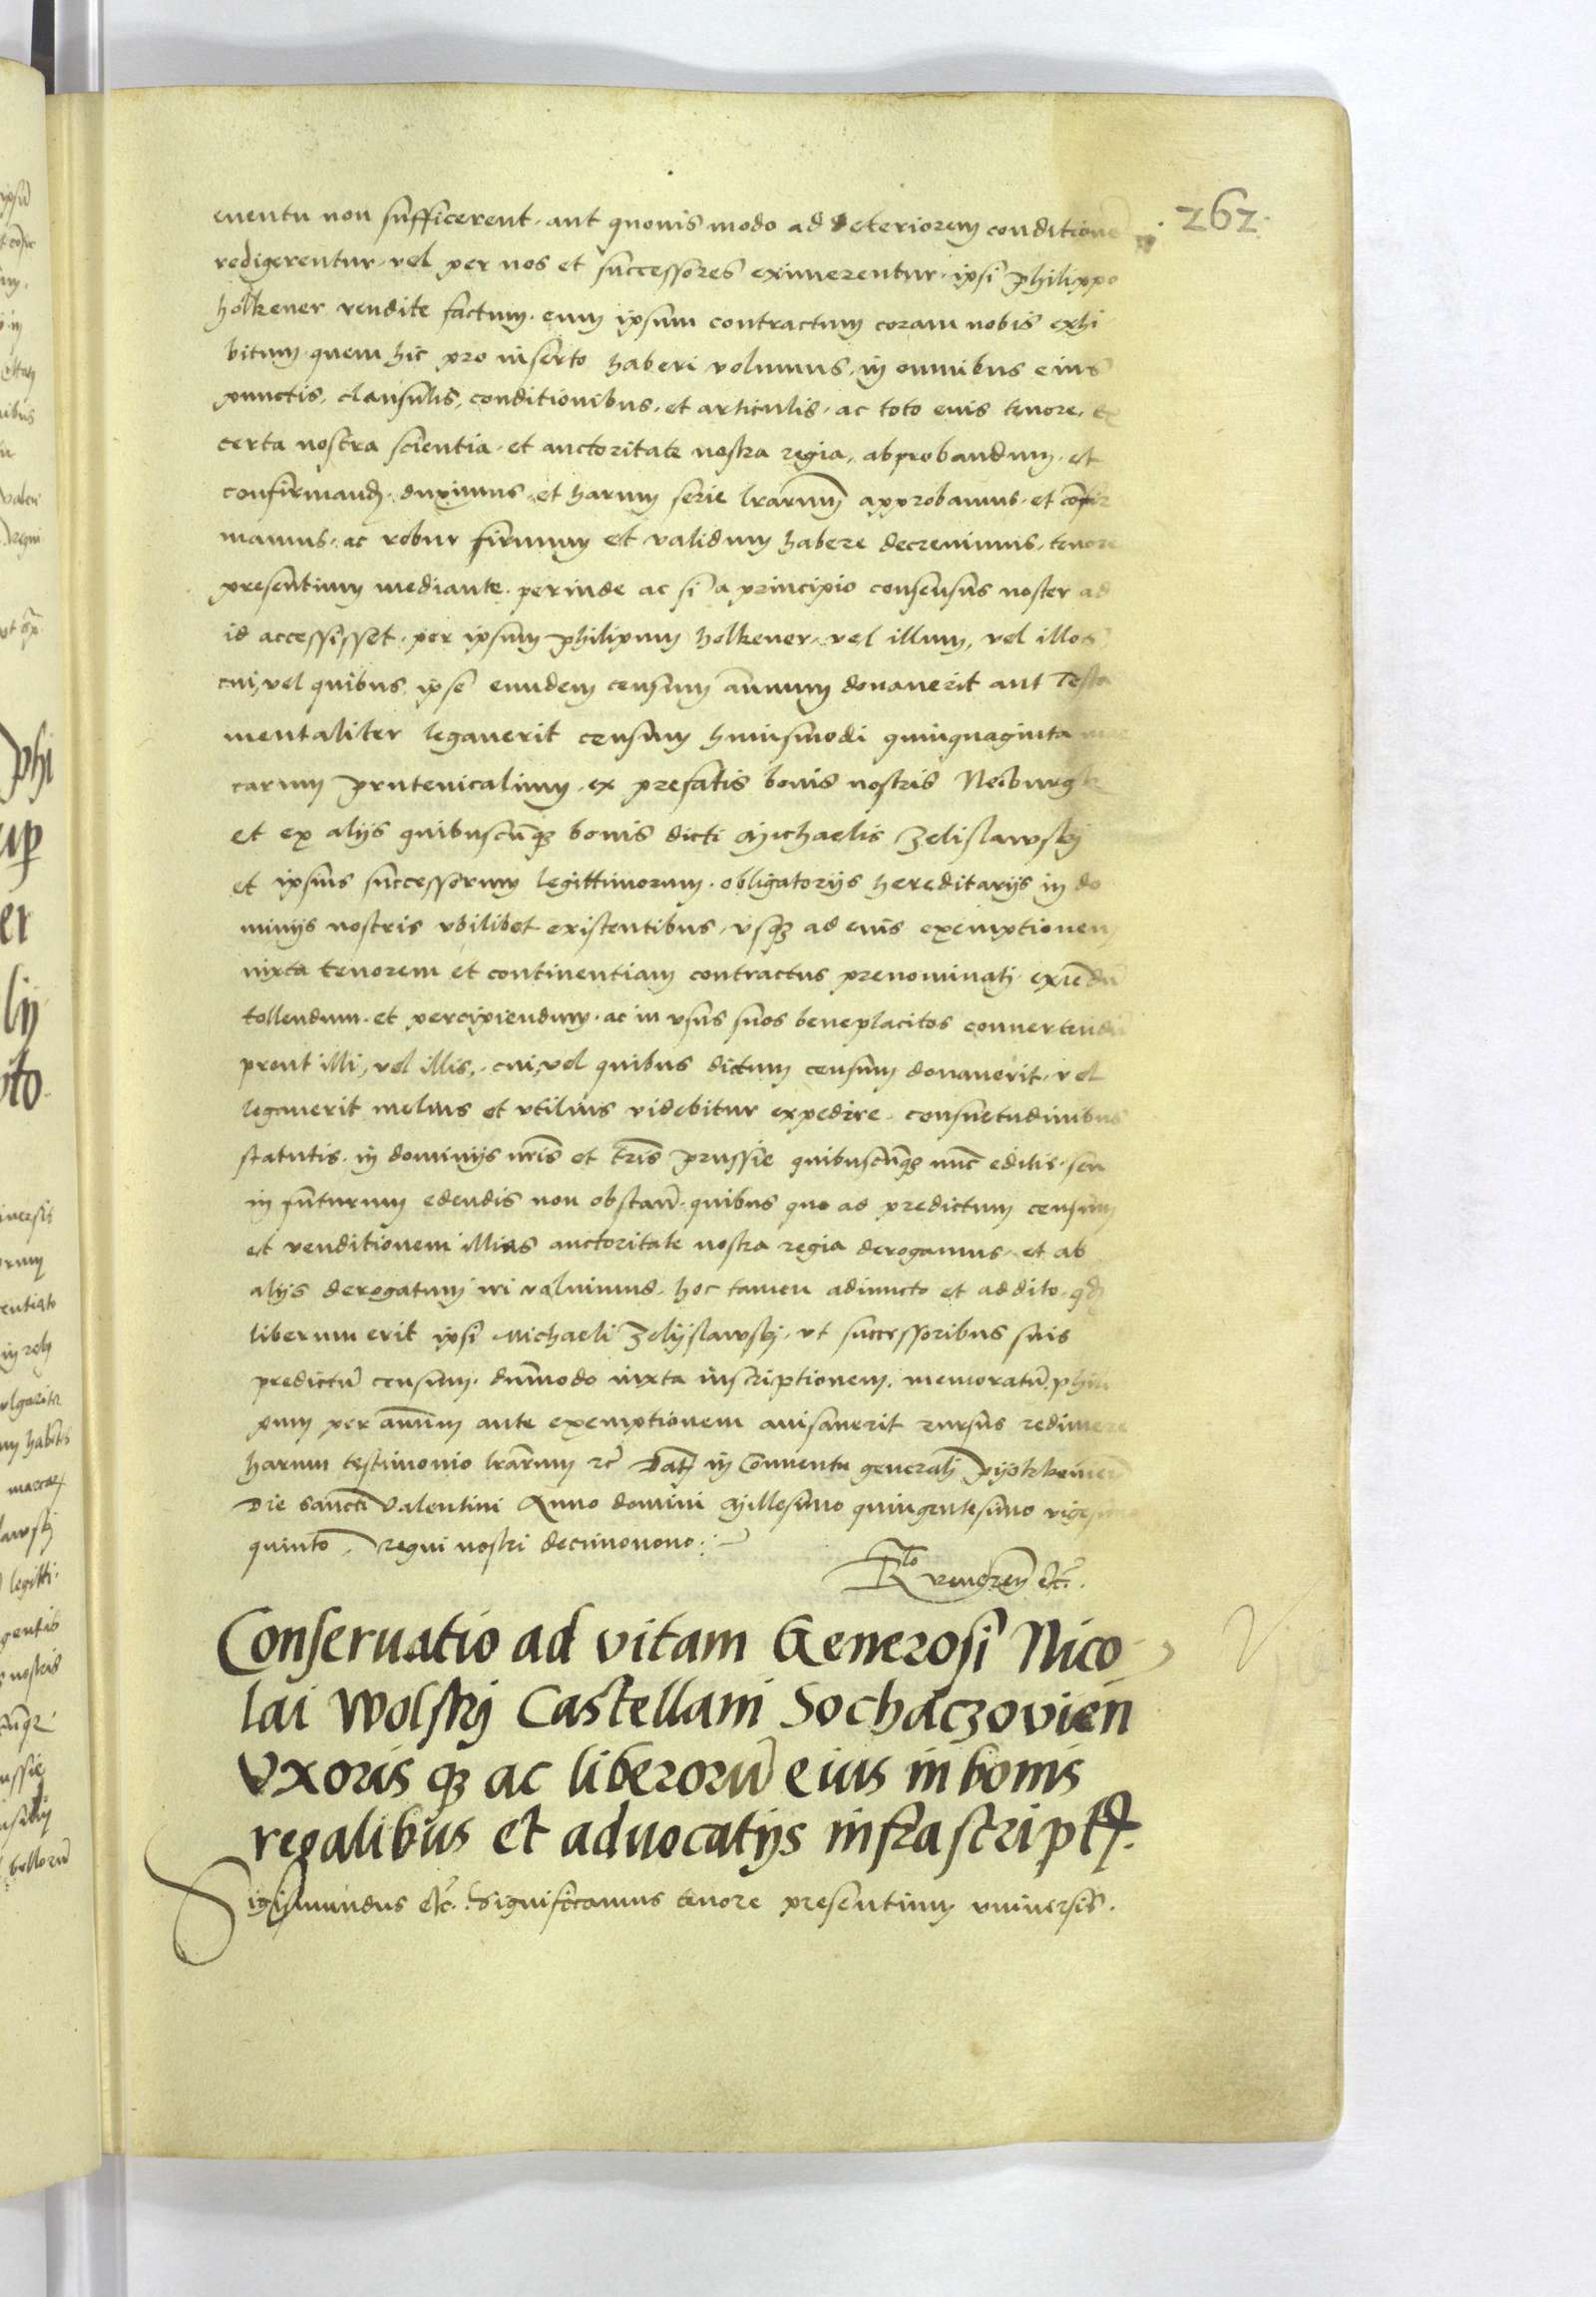 262
euentu non sufficerent. aut quouis modo ad deteriorem conditione
redigerentur. vel per nos et successores eximerentur. ipsi Philippo
holkener vendite factum. eum ipsum contractum coram nobis exhi
bitum. quem hic pro inserto haberi volumus. in omnibus eius
punctis, clausulis, conditionibus. et articulis. ac toto euis tenore. ex
certa nostra scientia. et auctoritate nostra regia. abprobandum. et
confirmand. duximus. et harum serie lrarum approbamus. et cofir
mamus. ac robur firmum et validum habere decreuimus. tenore
presentium mediante. perinde ac si a principio consensus noster ad
id accessisset. per ipsum Philipum holkener. vel illum, vel illos
cui, vel quibus ipse eundem censum annuum donauerit aut Testa
mentaliter legauerit censum huiusmodi quinquaginta
carum Prutenicalium. ex prefatis bonis nostris Neiburgk
et ex alijs quibuscunqz bonis dicti Michaelis Zelislawskj
et ipsius successorum legittimorum. obligatorijs hereditarijs in do
minijs nostris vbilibet existentibus. vsqz ad euis exemptionem
iuxta tenorem et continentiam contractus prenominatj. exiedu
tollendum. et percipiendum. ac in vsus suos beneplacitos conuertendu
prout illi, vel illis. cui, vel quibus dictum censum donauerit. vel
legauerit melius et vtilius videbitur expedire. consuetudinibus
statutis. in dominijs nris et tris Prussie quibuscunqz nunc editis. seu
in futurum edendis non obstan. quibus quo ad predictum censum
et venditionem illius auctoritate nostra regia derogamus. et ab
alijs derogatum iri volumus. hoc tamen adiuncto et addito. qd
liberum erit ipsi Michaeli Zelijslawskj. vt successoribus suis
predictu censum. dummodo iuxta inscriptionem. memoratu. phili
pum per annum ante exemptionem auisauerit rursus redimere
harum testimonio lrarum rc Dat in Conuentu generalj Pijotrkouien
Die Sancti Valentini Anno domini Millesimo quingentesimo vigesimo
quinto. regni nostri decimonono.
Rto veneren etc.
Conseruatio ad vitam Generosi Nico
lai Wolskj Castellani Sochaczovien
Vxoris qz ac liberoru eius in bonis
regalibus et aduocatijs infrascript.
Sigismundus etc. Significamus tenore presentium vniuersis.